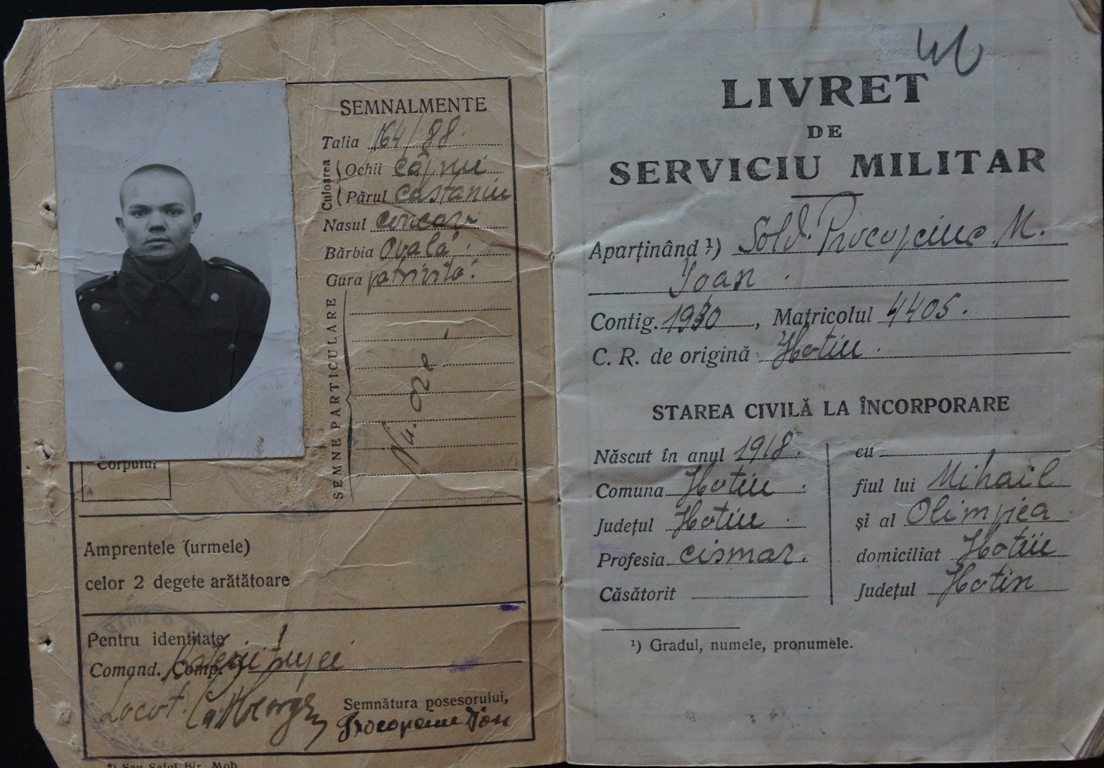 SEMNALMENTE
Talia 164/88
Culoarea
Ochii căprui
Părul castaniu
Nasul
Bărbia Ovală
Gura potrivită
SEMNE PARTICULARE
Nu are
Corpului
Amprentele (urmele)
celor 2 degete arătătoare
Pentru identitate
Comand. Comp.
Locot.
Semnătura posesorului,
Ion
LIVRET
DE
SERVICIU MILITAR
Aparținând ¹) Sold. M.
Ioan
Contig. 1940, Matricolul 4405.
C. R. de origină Hotin.
STAREA CIVILĂ LA ÎNCORPORARE
Născut în anul 1918.
Comuna Hotin.
Județul Hotin.
Profesia cismar.
Căsătorit
cu
fiul lui Mihail
și al Olimpiea
domiciliat Hotin
Județul Hotin
¹) Gradul, numele, pronumele.